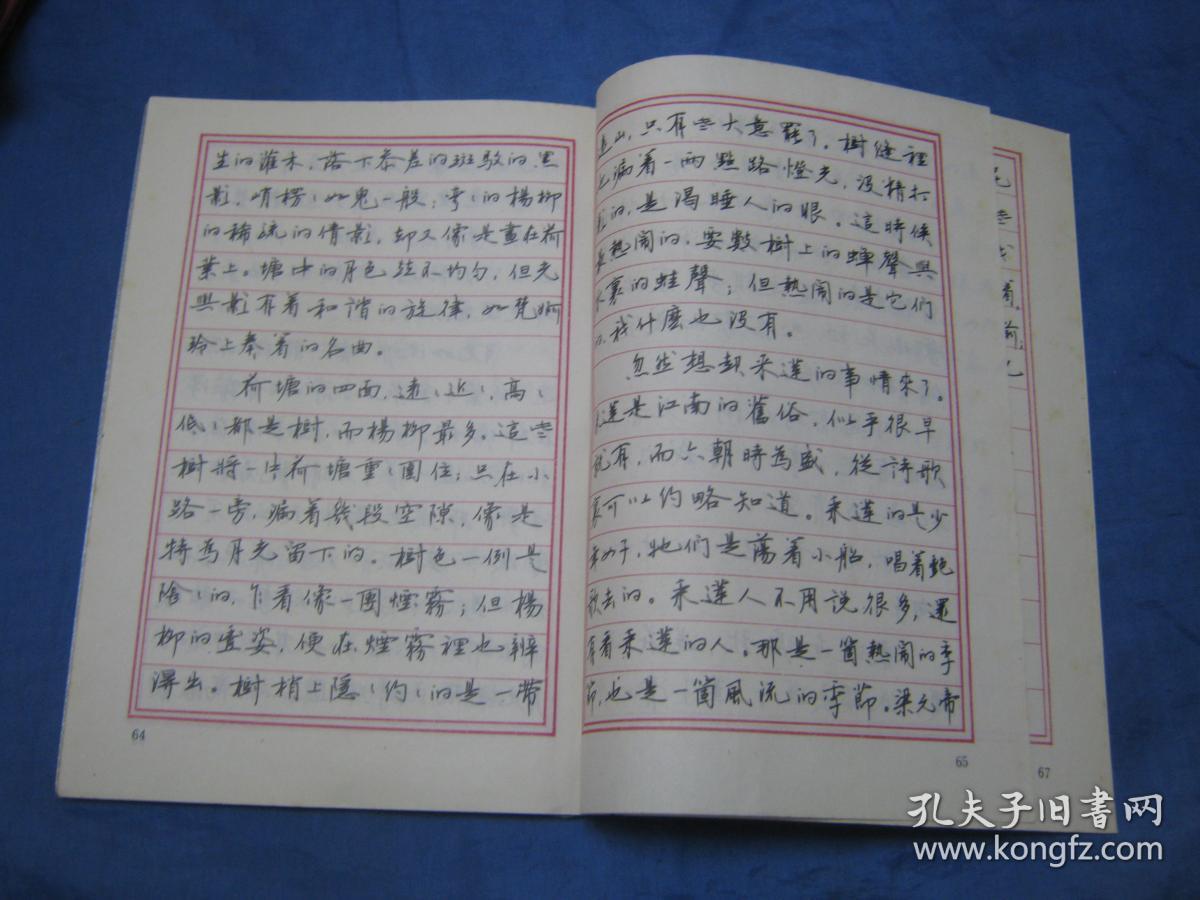 生的灌木，落下參差的斑駁的黑
影，峭楞〻如鬼一般；彎〻的楊柳
的稀疏的倩影，却又像是畫在荷
葉上。塘中的月色並不均勻，但光
與影有着和諧的旋律，如梵婀
玲上奏着的名曲。
荷塘的四面，遠〻近〻，高〻
低〻都是樹，而楊柳最多。這些
樹將一片荷塘重〻圍住；只在小
路一旁，漏着幾段空隙，像是
特爲月光留下的。樹色一例是
陰〻的，乍看像一團煙霧；但楊
柳的豐姿，便在煙霧裡也辨
得出。樹梢上隱〻約〻的是一帶
64
遠山，只有些大意罷了。樹縫裡
也漏着一兩點路燈光，沒精打
彩的，是渴睡人的眼。這時候
最熱鬧的，要數樹上的蟬聲與
水裏的蛙聲；但熱鬧的是它们
的，我什麽也沒有。
忽然想起采蓮的事情來了。
采蓮是江南的舊俗，似乎很早
就有，而六朝時爲盛，從詩歌
裏可以約略知道。采蓮的是少
年女子，她们是蕩着小船，唱着艷
歌去的。采蓮人不用說很多，還
有看采蓮的人。那是一箇熱鬧的季
節，也是一箇風流的季節。梁元帝
65
67
孔夫子旧书网
www.kongfz.com